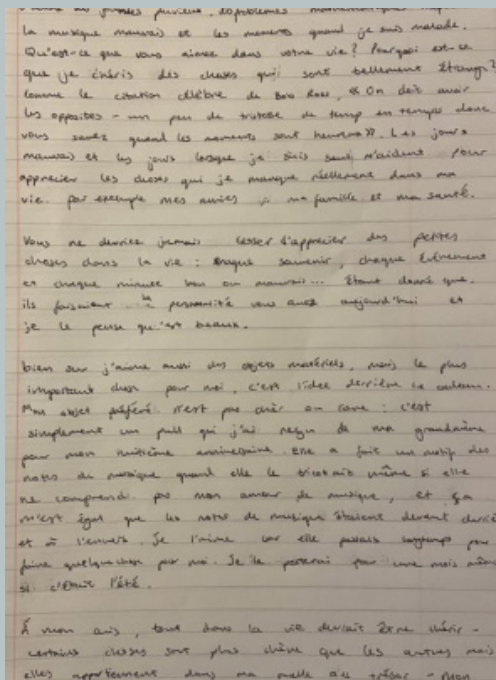 la musique mauvais et les moments quand je suis malade.
Qu'est-ce que vous aimez dans votre vie? Pourquoi est-ce
que je chéris des choses qui sont tellement étrange?
Comme le citation célèbre de Bob Ross, « On doit avoir
les opposites - un peu de tristesse de temp en temps donc
vous savez quand les moments sont heureux ». Les jours
mauvais et les jours lorsque je suis seul m'aident pour
apprecier les choses qui je manque réellement dans ma
vie. par exemple mes amies ma famille et ma santé.
Vous ne derriez jamais lesser d'apprecier des petites
choses dans la vie : chaque souvenir, chaque événement
et chaque minute bon ou mauvais... Étant donné que.
ils faisaient la personalité vous avez aujourd'hui et
je le pense qu'est beaux.
bien sur j'aime aussi des objets matériels, mais le plus
important chose pour moi, c'est l'idée derrière le
Mon objet préféré n'est pas chèr ou rare : c'est
simplement un pull qui j'ai reçu de ma grandmère
pour mon huitième anniversaire. Elle a fait un motif des
notes de musique quand elle le tricotait même si elle
ne comprend pas mon amour de musique, et ça
m'est égal que les notes de musique étaient devant derriè
et à l'envers. Je l'aime car elle passais longtemps pour
faire quelquechose pour moi. Je le porterai pour une mois même
si c'était l'été.
À mon avis, tout dans la vie devrait être chérir -
certains choses sont plus chère que les autres mais
elles appartiennent dans ma trésor - mon